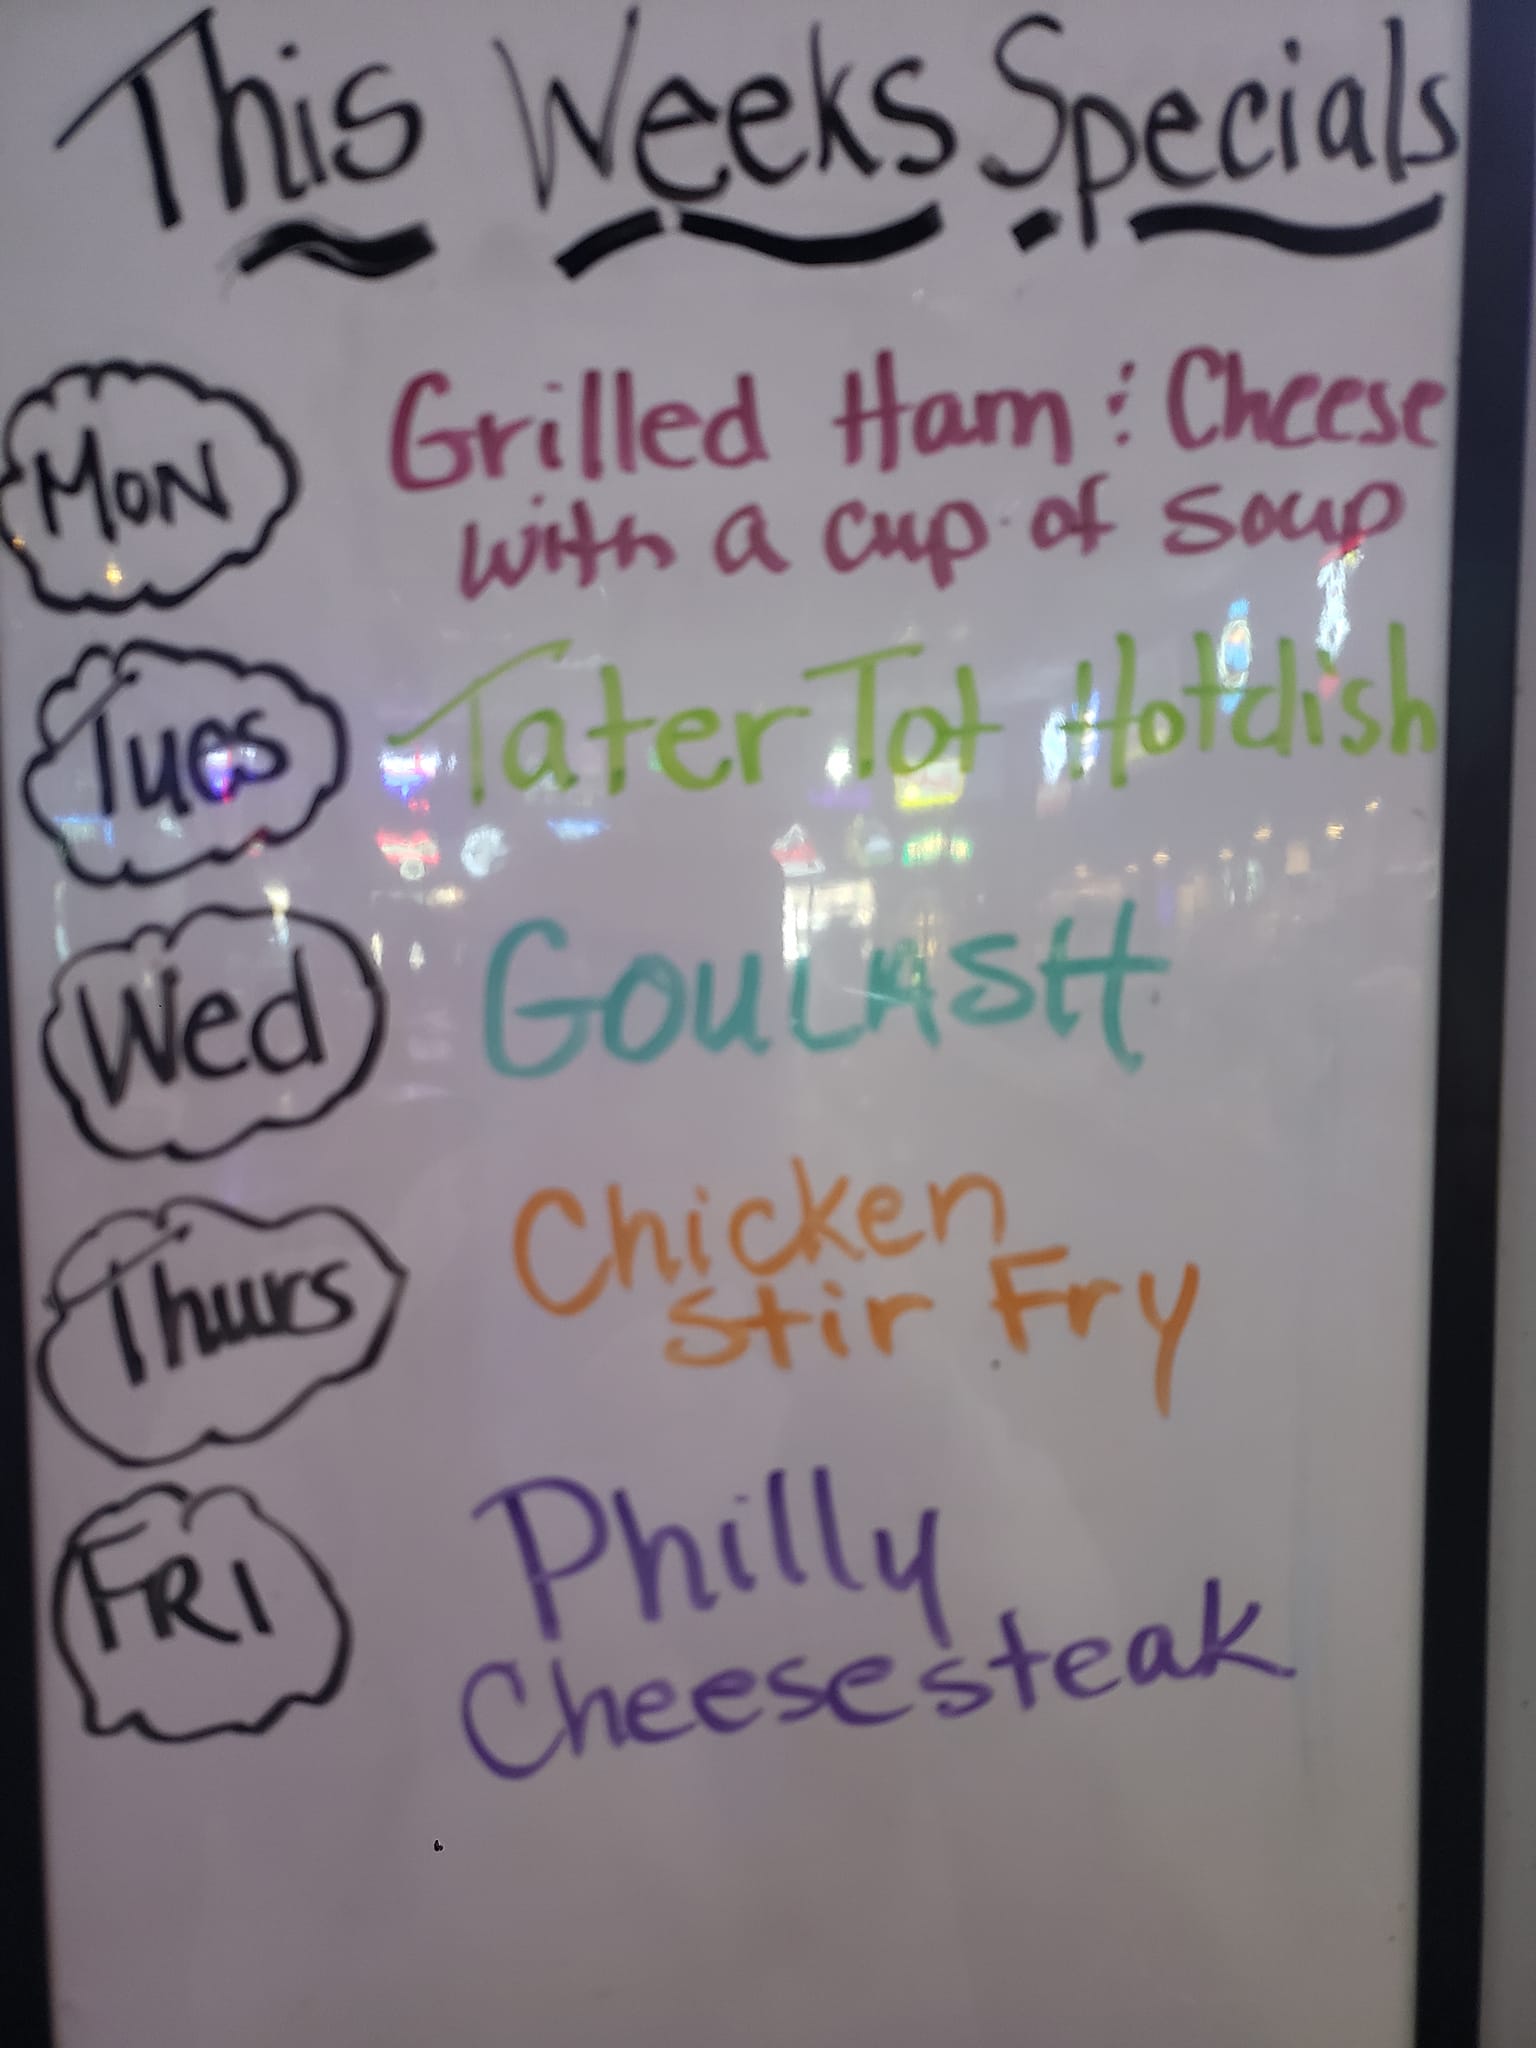 This Weeks Specials
Mon Grilled Ham & Cheese
with a cup of soup
Tues Tater Tot Hotdish
Wed GOULASH
Thurs Chicken
Stir Fry
FRI Philly
Cheesesteak